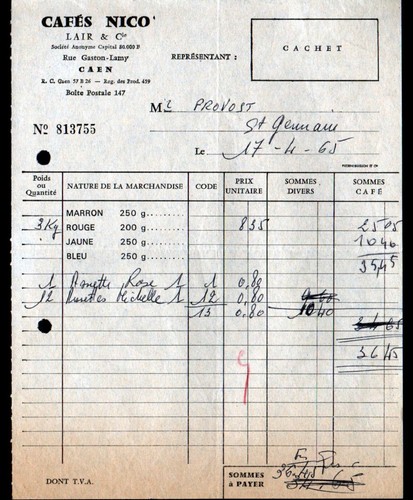 CAFÉS NICO'
LAIR & Cie
Société Anonyme Capital 80.000 F
Rue Gaston-Lamy
CAEN
R. C. Caen 57 B 26 — Reg. des Prod. 459
Boîte Postale 147
REPRÉSENTANT :
CACHET
M. PROVOST
St Germain
Nº 813755
Le 17-4-65
Poids ou Quantité NATURE DE LA MARCHANDISE CODE PRIX UNITAIRE SOMMES DIVERS SOMMES CAFÉ
MARRON 250 g
3 Kg ROUGE 200 g 835 2505
JAUNE 250 g 1040
BLEU 250 g 3545
1 Rose 1 1 0,80
12 Michelle 1 12 0,80
13 0,80 10 40
3645
DONT T.V.A.
SOMMES à PAYER